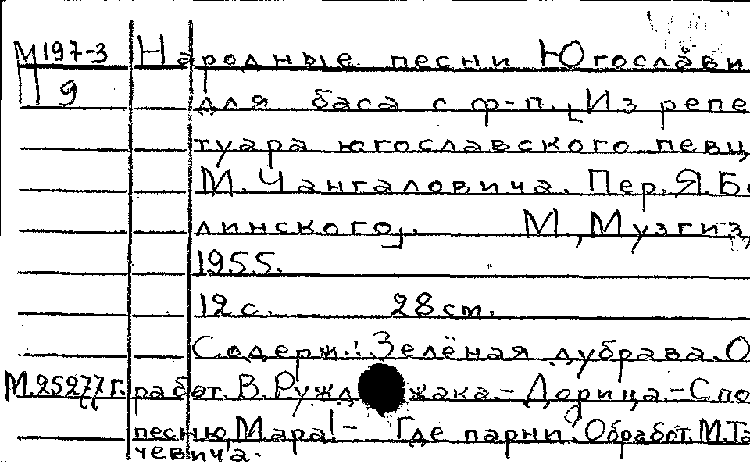 М 197-3 Народные песни Югослави
19 для баса с ф-п. [Из репе
туара югославского певц
М. Чангаловича. Пер. Я. Б
линского]. М., Музгиз,
1955.
12 с. 28 см.
Содерж.: Зелёная дубрава. О
М.25277 г. работ. В. Ружд жака.- Дорица.- Спо
песню, Мара!- Где парни. Обработ. М. Та
чевича.